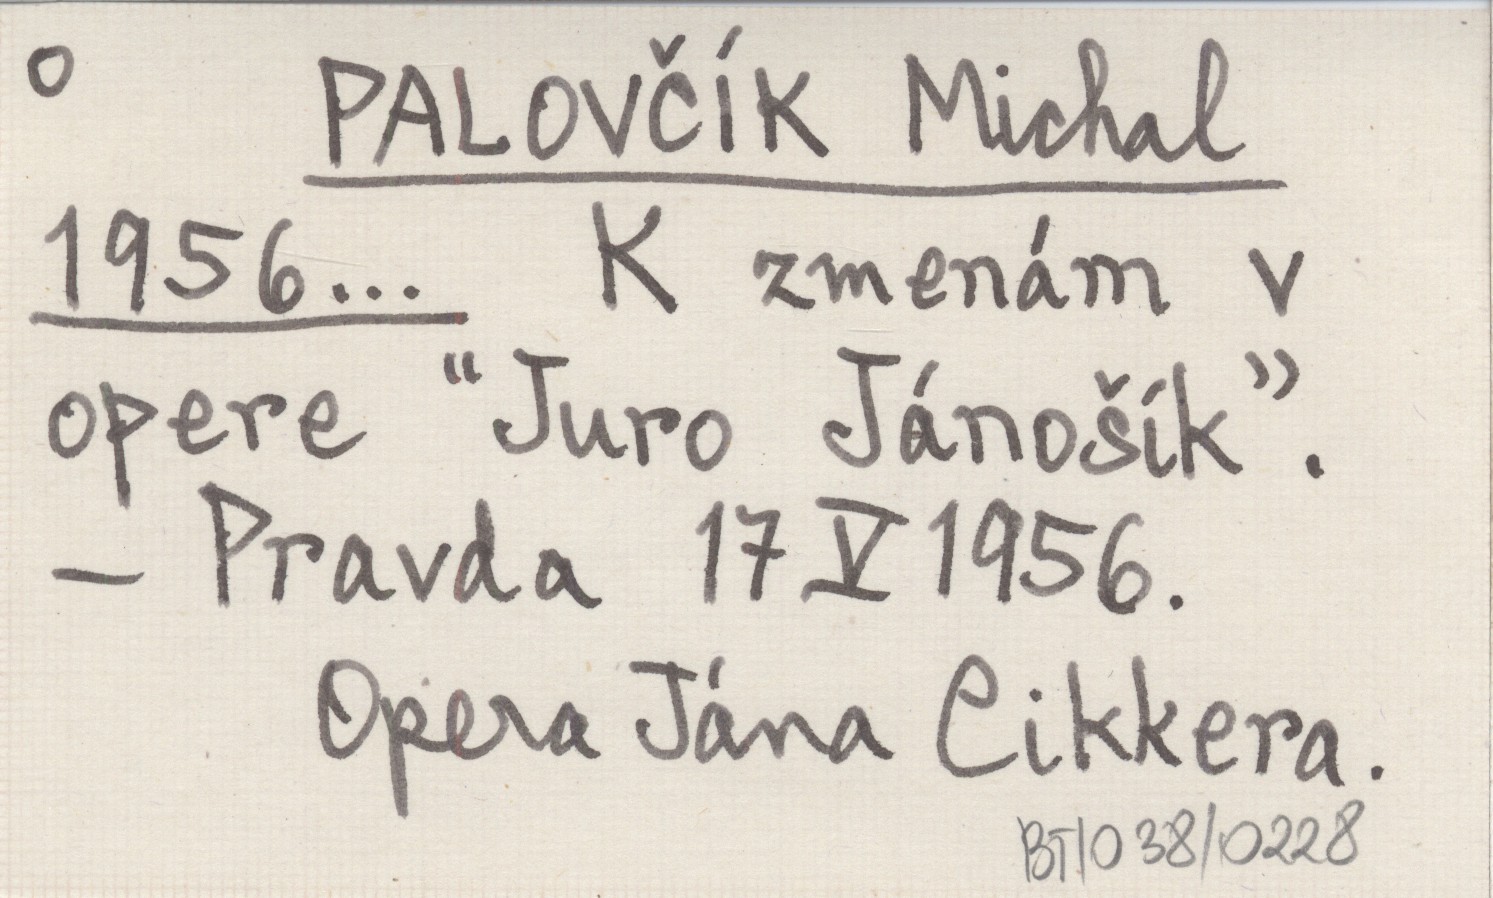 o PALOVČÍK Michal
1956... K zmenám v
opere “Juro Jánošík”.
— Pravda 17 V 1956.
Opera Jána Cikkera.
BT/038/0228